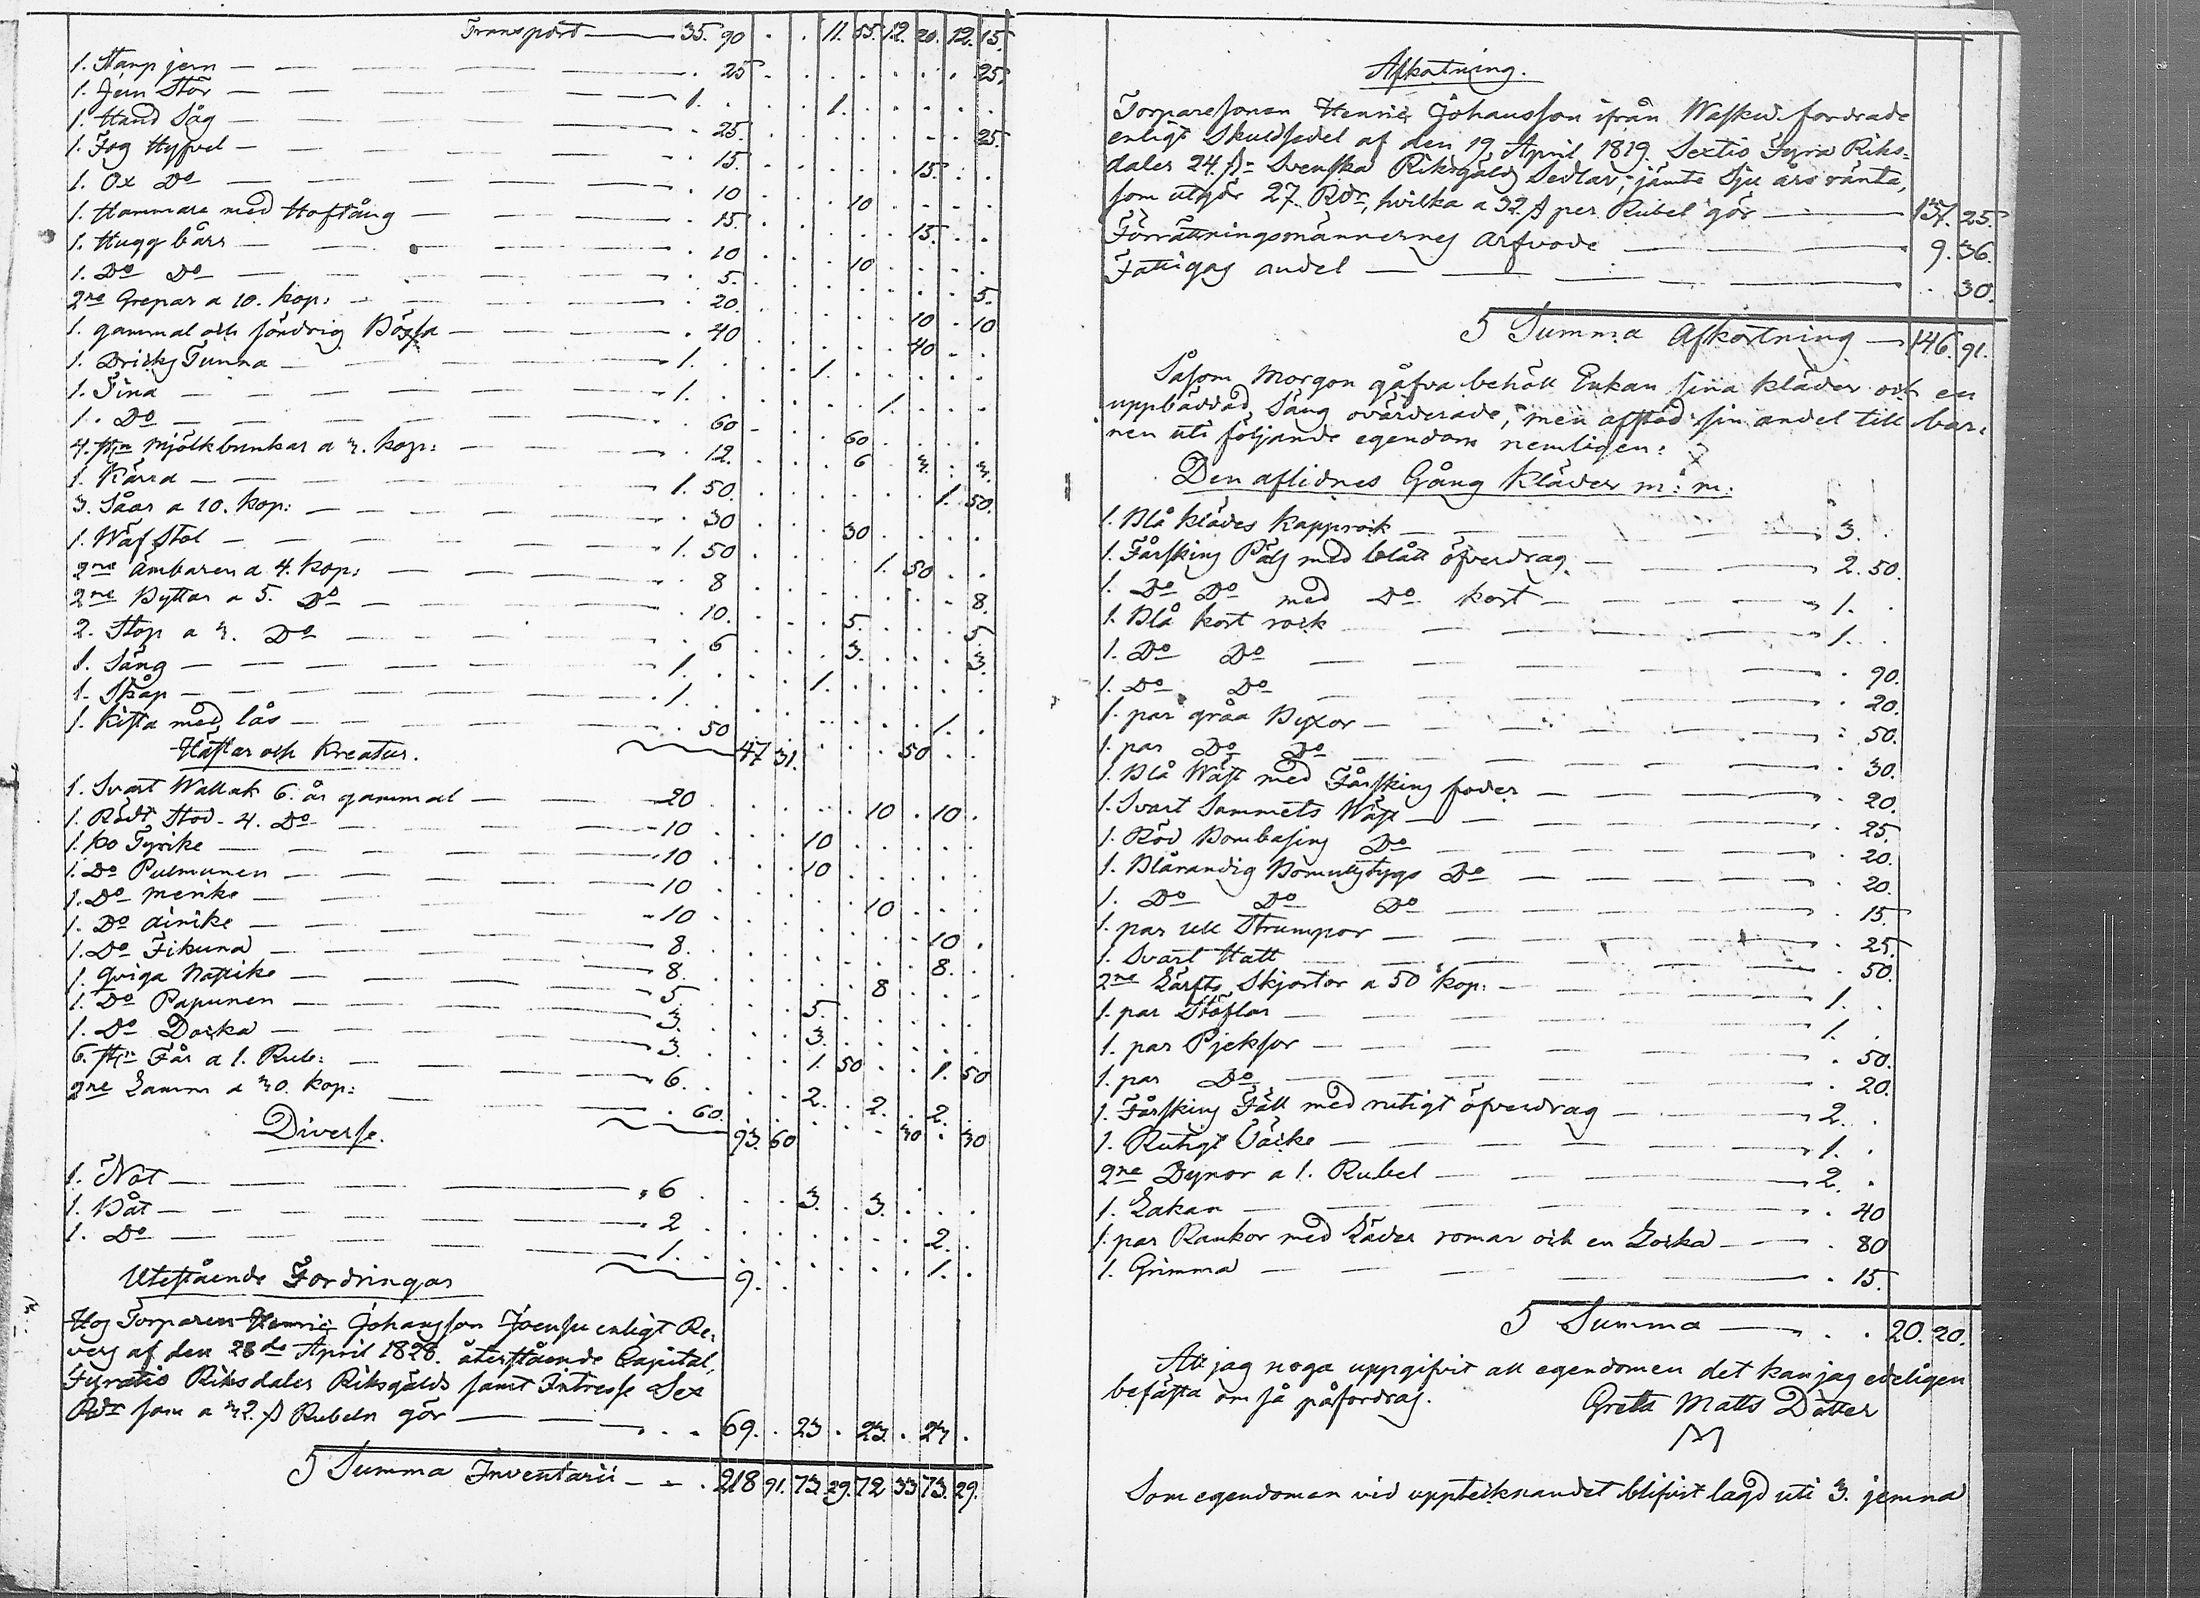 Transport — 35. 90 . . 11. 55. 12. 20. 12. 15.
1. Stamp jern — . 25 . 25.
1. Jern Stör — 1. . 1.
1. Hand Såg — . 25. . 25.
1. Fog Hyfvel — . 15. . 15.
1. Ox Do — . 10 . 10
1. Hammare med Hoftång — . 15. . 15.
1. Hugg bårr — . 10 . 10
1. Do Do — . 5. . 5.
2ne Grepar a 10. kop: — . 20. . 10 . 10
1. gammal och söndrig Bössa — . 40 . 40
1. Dricks Tunna — 1. . 1.
1. Tina — 1. . 1.
1. Do — . 60 . 60
4. stn Mjölkbunkar a 3. kop: — . 12. . 6 . 3. . 3.
1. Kärra — 1. 50. . 1. 50.
3. Såar a 10. kop: — . 30 . 30
1. Wäf stol — 1. 50 . 1. 50
2ne Ämbaren a 4. kop: — . 8 . 8.
2ne Byttar a 5. Do — . 10. . 5. . 5.
2. Stop a 3. Do — . 6 . 3. . 3.
1. Säng — 1. . 1.
1. Skåp — . 1. . 1.
1. Kista med lås — . 50 . 50
Hästar och Kreatur. 47 31.
1. Svart Wallak 6. år gammal — 20 . 10 . 10
1. Rödt Stod. 4. Do — 10 . 10
1. Ko Tyrike — 10 . 10
1. Do Pulmunen — 10 . 10
1. Do Merike — 10 . 10
1. Do Ainike — 8. . 8.
1. Do Fikuna — 8. . 8
1. Qviga Natike — 5. . 5.
1. Do Papunen — 3. . 3.
1. Do Docka — 3. . 1. 50 . 1. 50
6. stn Får a 1. Rub: — 6. . 2. . 2. . 2.
2ne Lamm a 30. kop: — . 60. . 30 . 30
Diverse. 93. 60
1. Not — 6 . 3. . 3.
1. Båt — 2 . 2.
1. Do — 1. . 1.
Utestående Fordringar 9.
Hos Torparen Henric Johansson Joensu enligt Re-
vers af den 28de April 1826. återstående Capital,
Fyratio Riksdaler Riksgälds samt Intresse Sex
Rdr som a 32. ß Rubeln gör — 69. . 23 . 23. . 23 .
S Summa Inventarii — 218 91. 73. 29. 72 33 73. 29.
Afkortning.
Torparesonen Henric Johansson ifrån fordrade
enligt Skuldsedel af den 19. April 1819. Sextio Fyra Riks-
daler 24. ß: Svenska Riksgälds Sedlar, jämte Sju års ränta,
som utgör 27. Rdr, hvilka a 32 ß per Rubel gör — 137. 25.
Förrättningsmännernes arfvode — 9. 36.
Fattigas andel — . 30.
S Summa Afkortning — 146. 91.
Såsom Morgon gåfva behåll Enkan sina kläder och en
uppbäddad Säng ovärderade, men afstod sin andel till bar-
nen uti följande egendom nemligen:
Den aflidnes Gång Kläder m: m:
1. Blå klädes Kapprock — 3. .
1. Fårskins Päls med blått öfverdrag — 2. 50.
1. Do Do med Do kort — 1. .
1. Blå kort rock — 1. .
1. Do Do — . 90.
1. Do Do — . 20.
1. par gråa Byxor — . 50.
1. par Do Do — . 30.
1. Blå Wäst med Fårskins foder — . 20.
1. Svart Sammets Wäst — . 25.
1. Röd Bombasins Do — . 20.
1. Blårandig Bomullstygs Do — . 20.
1. Do Do Do — . 15.
1. par ull Strumpor — . 25.
1. Svart Hatt — . 50.
2ne Lärfts Skjortor a 50 kop: — 1. .
1. par Stöflar — 1. .
1. par Pjeksor — . 50.
1. par Do — . 20.
1. Fårskins Fäll med rutigt öfverdrag — 2. .
1. Rutigt Täcke — 1. .
2ne Dynor a 1. Rubel — 2. .
1. Lakan — . 40
1. par Rankor med Läder romar och en Locka — . 80
1. Grimma — . 15.
S Summa — 20. 20.
Att jag noga uppgifvit all egendomen det kan jag edeligen
befästa om så påfordras.
Greta Matts Dotter
M
Som egendomen vid upptecknandet blifvit lagd uti 3. jemna